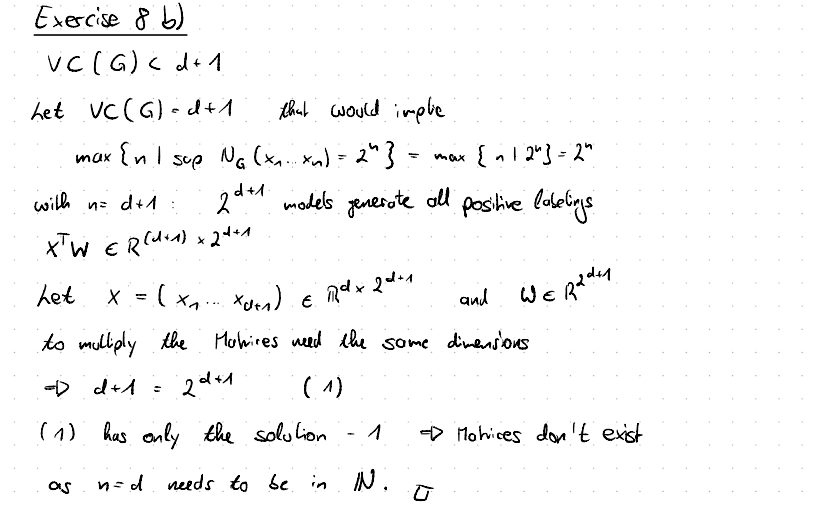 Exercise 8 b)
VC(G) < d+1
Let VC(G) = d+1 that would implie
max {n | sup N_G (x_1 ... x_n) = 2^n } = max { n | 2^n} = 2^n
with n = d+1 : 2^{d+1} models generate all positive labelings
X^T W ∈ R^{(d+1) × 2^{d+1}}
Let X = ( x_1 ... x_{d+1}) ∈ ℝ^{d × 2^{d+1}} and W ∈ ℝ^{2^{d+1}}
to multiply the Matrices need the same dimensions
⇒ d+1 = 2^{d+1} (1)
(1) has only the solution - 1 ⇒ Matrices don't exist
as n=d needs to be in ℕ. □